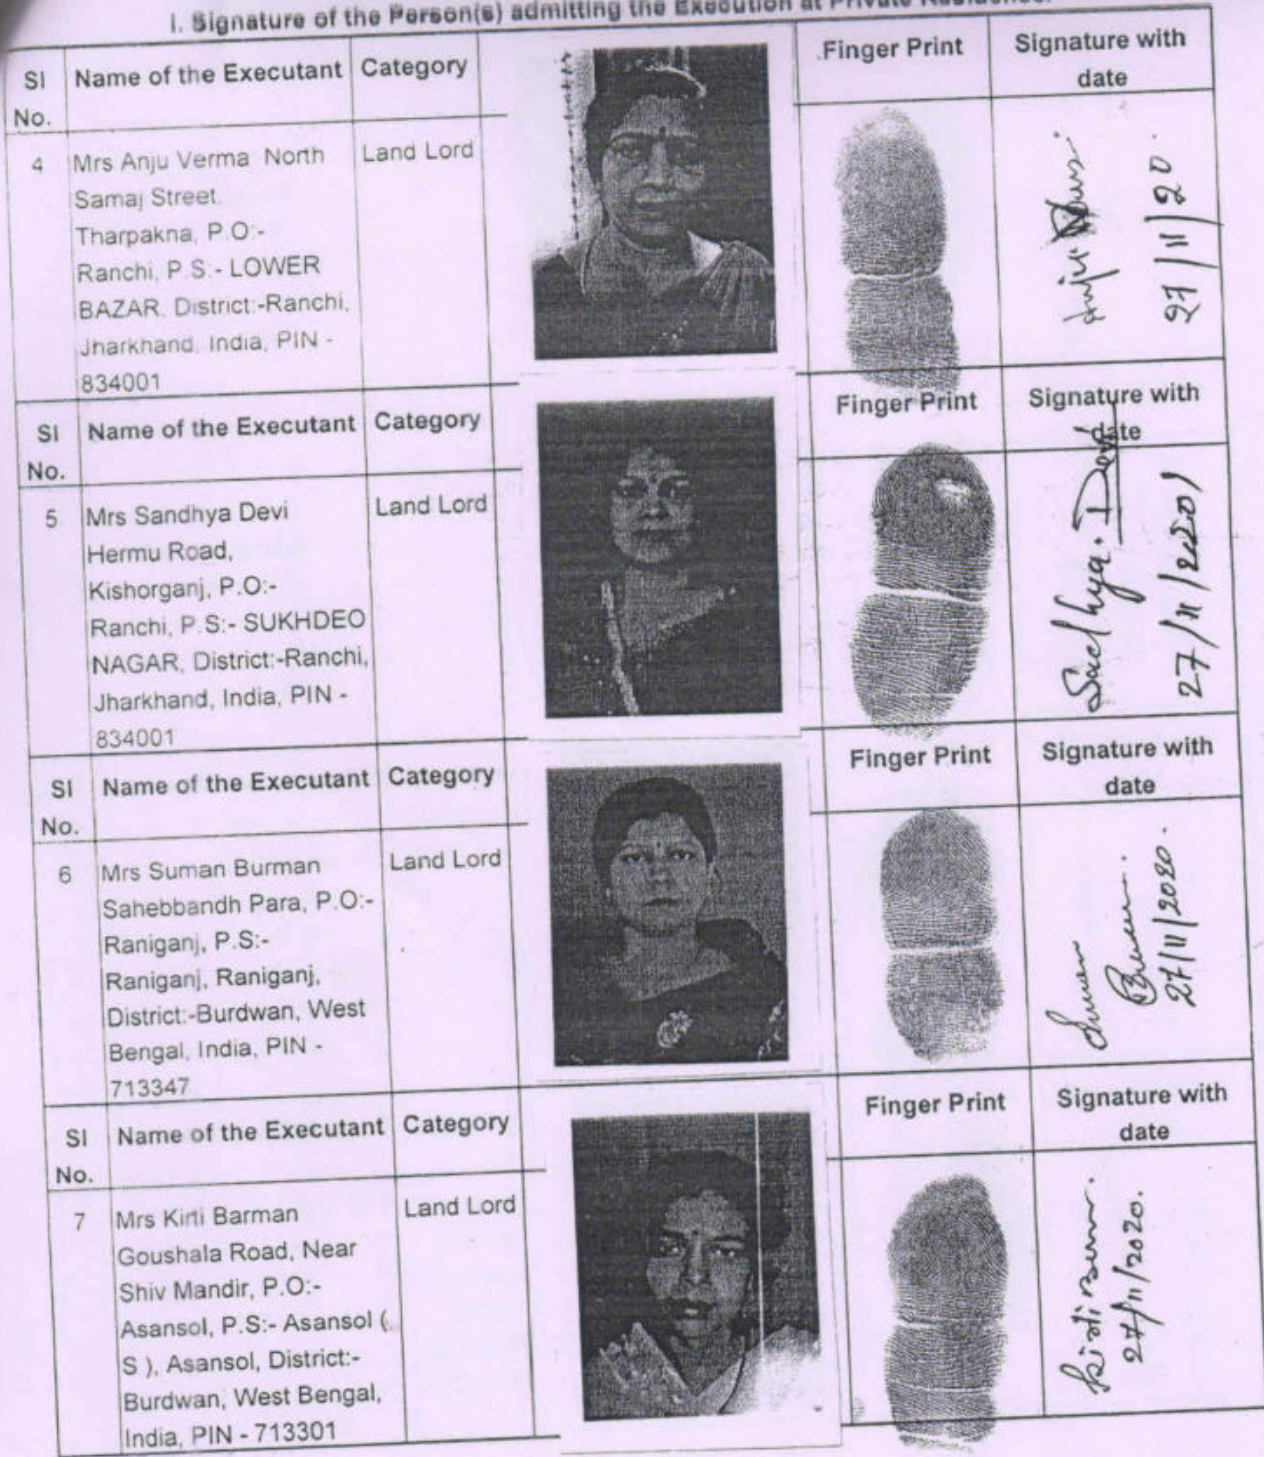 I. Signature of the Person(s) admitting the Execution at Private Residence.
Sl No. Name of the Executant Category Finger Print Signature with date
4 Mrs Anju Verma North Land Lord
Samaj Street.
Tharpakna, P.O:-
Ranchi, P.S:- LOWER
BAZAR. District:-Ranchi,
Jharkhand, India, PIN -
834001
Anju
27/11/20.
Sl No. Name of the Executant Category Finger Print Signature with date
5 Mrs Sandhya Devi Land Lord
Hermu Road,
Kishorganj, P.O:-
Ranchi, P.S:- SUKHDEO
NAGAR, District:-Ranchi,
Jharkhand, India, PIN -
834001
Sadhya. Devi
27/11/
Sl No. Name of the Executant Category Finger Print Signature with date
6 Mrs Suman Burman Land Lord
Sahebbandh Para, P.O:-
Raniganj, P.S:-
Raniganj, Raniganj,
District:-Burdwan, West
Bengal, India, PIN -
713347
Suman
27/11/2020.
Sl No. Name of the Executant Category Finger Print Signature with date
7 Mrs Kirti Barman Land Lord
Goushala Road, Near
Shiv Mandir, P.O:-
Asansol, P.S:- Asansol (
S ), Asansol, District:-
Burdwan, West Bengal,
India, PIN - 713301
Kirti
27/11/2020.